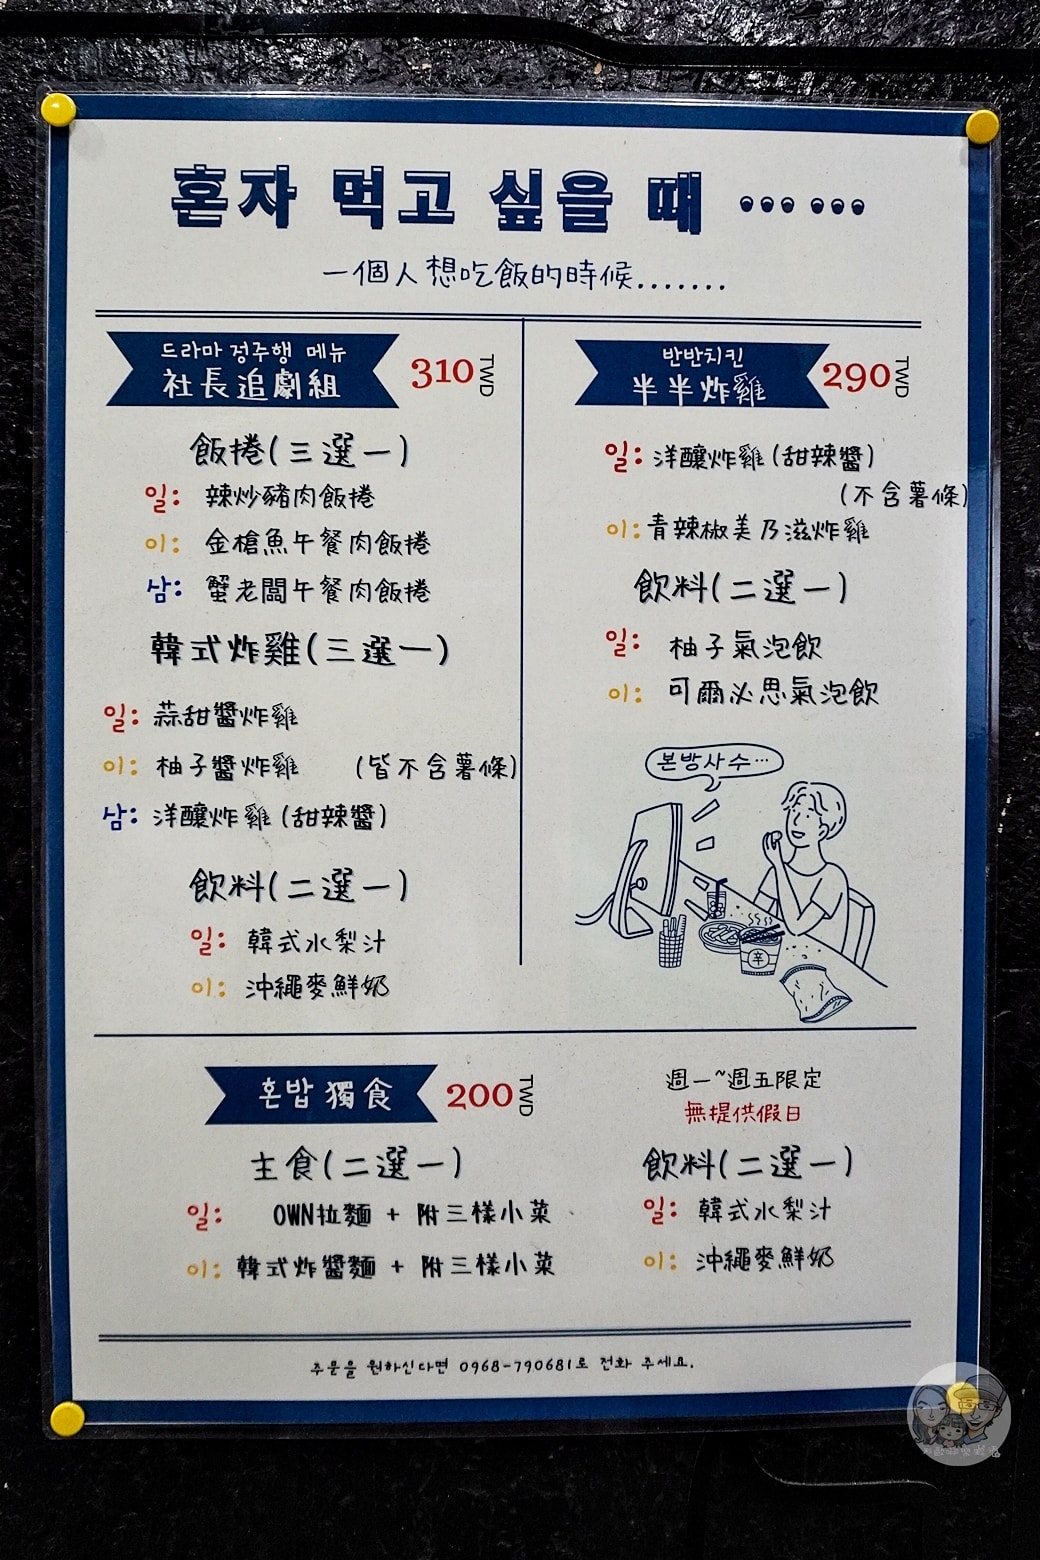 혼자 먹고 싶을 때 ……
一個人想吃飯的時候.......
드라마 정주행 메뉴
社長追劇組
310 TWD
飯捲(三選一)
일: 辣炒豬肉飯捲
이: 金槍魚午餐肉飯捲
삼: 蟹老闆午餐肉飯捲
韓式炸雞(三選一)
일: 蒜甜醬炸雞
이: 柚子醬炸雞 (皆不含薯條)
삼: 洋釀炸雞(甜辣醬)
飲料(二選一)
일: 韓式水梨汁
이: 沖繩麥鮮奶
반반치킨
半半炸雞
290 TWD
일: 洋釀炸雞(甜辣醬)
(不含薯條)
이: 青辣椒美乃滋炸雞
飲料(二選一)
일: 柚子氣泡飲
이: 可爾必思氣泡飲
본방사수…
辛
혼밥 獨食
200 TWD
週一~週五限定
無提供假日
主食(二選一)
일: OWN拉麵 + 附三樣小菜
이: 韓式炸醬麵 + 附三樣小菜
飲料(二選一)
일: 韓式水梨汁
이: 沖繩麥鮮奶
주문을 원하신다면 0968-790681로 전화 주세요.